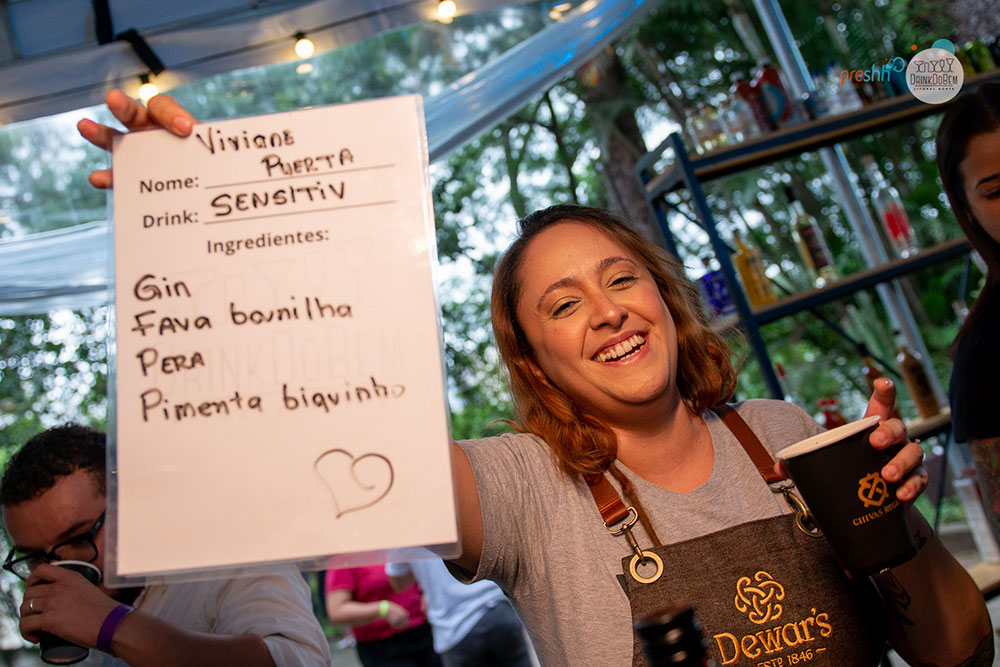 preshh
DRINKDOBEM
LITORAL NORTE
Viviane
PUERTA
Nome:
Drink: SENSITIV
Ingredientes:
Gin
FAVA baunilha
PERA
Pimenta biquinho
DRINKDOBEM
CHIVAS
DEWAR'S
ESTD 1846